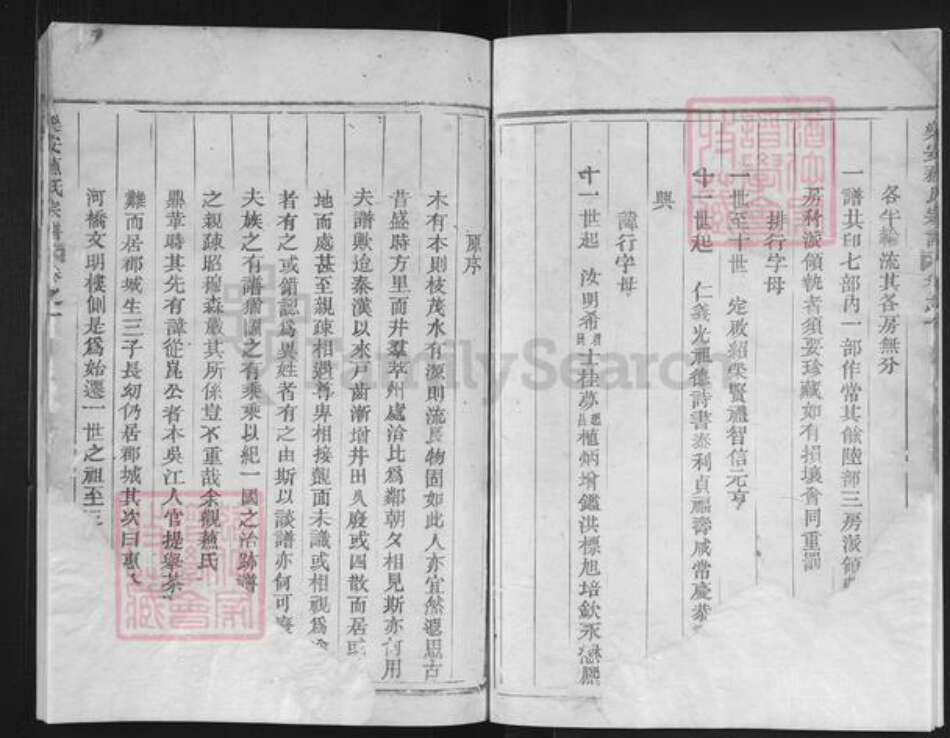 各年輪流其各房無分
一譜共印七部內一部作常其餘陸部三房派領
房利派領執者須要珍藏如有損壞會同重罰
排行字母
一世至十世 定啟紹榮賢禮智信元亨
十一世起 仁義光祖德詩書泰利貞福壽咸常慶恭
興
諱行字母
十一世起 汝明希 士桂夢 植炳增鑑洪標旭培欽承
原序
木有本則枝茂水有源則流長物固如此人亦宜然遐思古
昔盛時方里而井羣萃州處洽比為鄰朝夕相見斯亦何用
夫譜歟迨秦漢以來戶齒漸增井田久廢或四散而居或
地而處甚至親疎相遇尊卑相接覿面未識或相視為
者有之或錯認為異姓者有之由斯以談譜亦何可廢
夫族之有譜猶國之有乘乘以紀一國之治跡譜
之親疎昭穆森嚴其所係豈不重哉余觀蔴氏
鼎革時其先有諱從崑公者本吳江人官提舉茶
難而居郡城生三子長幼仍居郡城其次曰惠
河橋文明樓側是為始遷一世之祖至三
氏宗譜
FamilySearch